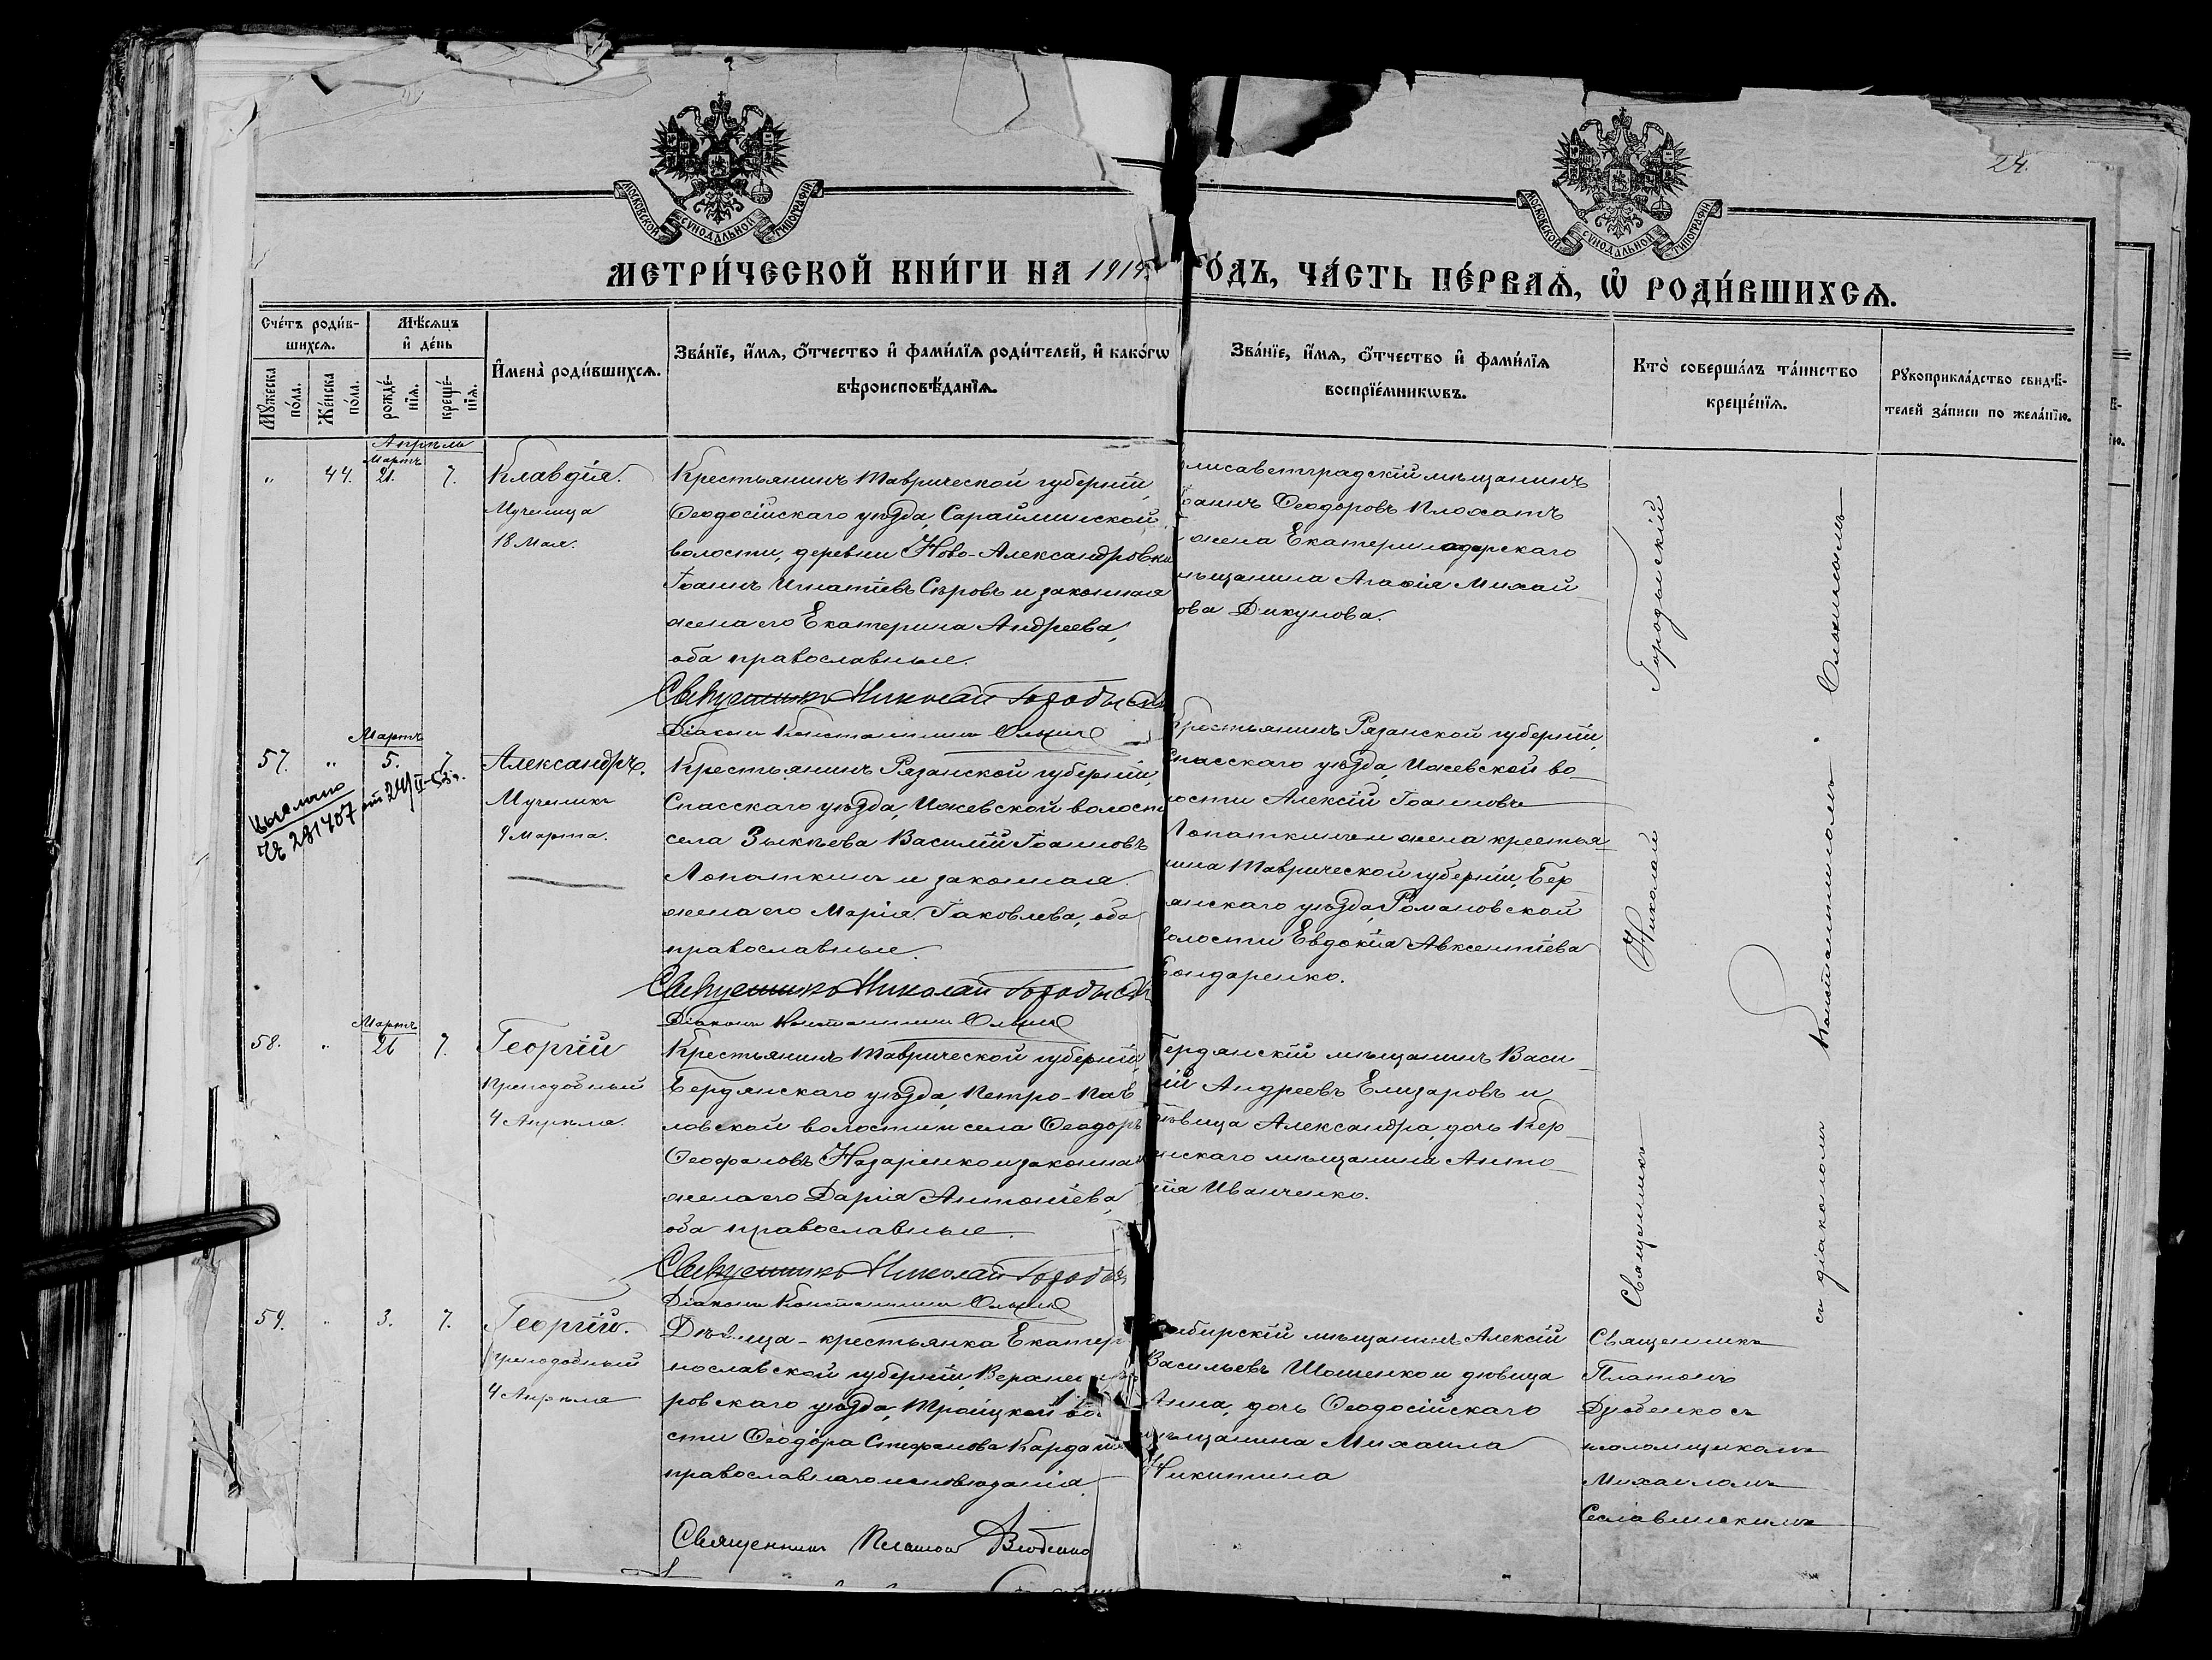 24.
МОСКОВСКОЙ СУНОДАЛЬНОЙ ТИПОГРАФІИ
МОСКОВСКОЙ СУНОДАЛЬНОЙ ТИПОГРАФІИ
МЕТРИ́ЧЕСКОЙ КНИ́ГИ НА 1915 ГО́ДЪ, ЧА́СТЬ ПЕ́РВАѦ, Ѡ҆ РОДИ́ВШИХСѦ.
Сче́тъ роди́в-
шихсѧ.
Мꙋ́жеска по́ла.
Же́нска по́ла.
Мѣ́сѧцъ
и҆ де́нь
рожде́-
нїѧ.
креще́-
нїѧ.
И҆мена̀ роди́вшихсѧ.
Зва́нїе, и҆́мѧ, ѻ҆́тчество и҆ фами́лїѧ роди́телей, и҆ како́гѡ
вѣроисповѣ́данїѧ.
Зва́нїе, и҆́мѧ, ѻ҆́тчество и҆ фами́лїѧ
воспрїе́мникѡвъ.
Кто̀ соверша́лъ та́инство
креще́нїѧ.
Рꙋкоприкла́дство свидѣ́-
телей за́писи по жела́нїю.
Апрѣль
Мартъ
" 44. 21. 7.
Клавдія.
Мученица
18 Мая.
Крестьянинъ Таврической губерніи,
Ѳеодосійскаго уѣзда, Сарайминской
волости, деревни Ново-Александровки
Іоаннъ Игнатіевъ Сѣровъ и законная
жена его Екатерина Андреева,
оба православные.
Священникъ Николай Городыскій
Діаконъ Константинъ
лисаветградскій мѣщанинъ
Іоаннъ Ѳеодоровъ Плохатъ
жена Екатеринодарскаго
мѣщанина Агаѳія Михай
ова Дикунова.
Мартъ
57. " 5. 7.
выслано
281407 от 24/II-53г.
Александръ.
Мученикъ
9 Марта.
Крестьянинъ Рязанской губерніи,
Спасскаго уѣзда, Ижевской волости
села Зыкѣева Василій Іоанновъ
Лопаткинъ и законная
жена его Марія Іаковлева, оба
православные.
Священникъ Николай Городыскій
Діаконъ Константинъ
Крестьянинъ Рязанской губерніи,
Спасскаго уѣзда, Ижевской во-
лости Алексій Іоанновъ
Лопаткинъ и жена крестья
нина Таврической губерніи, Бер-
янскаго уѣзда, Романовской
волости Евдокія Авксентіева
Бондаренко.
Мартъ
58. " 26 7.
Георгій
Преподобный
4 Апрѣля.
Крестьянинъ Таврической губерніи,
Бердянскаго уѣзда, Петро-Пав
ловской волости и села Ѳеодоръ
Ѳеофановъ Назаренко и законная
жена его Дарія Антоніева,
оба православные.
Священникъ Николай Городыскій
Діаконъ Константинъ
Бердянскій мѣщанинъ Васи-
лій Андреевъ Елизаровъ и
дѣвица Александра, дочь Кер-
нскаго мѣщанина Анто-
нія Иванченко.
Священникъ Николай Городыскій
съ діакономъ Константиномъ
59. " 3. 7.
Георгій.
Преподобный
4 Апрѣля
Дѣвица-крестьянка Екатер
нославской губерніи, Верхнед
ровскаго уѣзда, Троицкой во
сти Ѳеодора Стефанова
православнаго исповѣданія.
Священникъ Платонъ
Симбирскій мѣщанинъ Алексій
Васильевъ Шошенко и дѣвица
Анна, дочь Ѳеодосійскаго
мѣщанина Михаила
Никитина
Священникъ
Платонъ
съ
псаломщикомъ
Михаиломъ
Сеславинскимъ